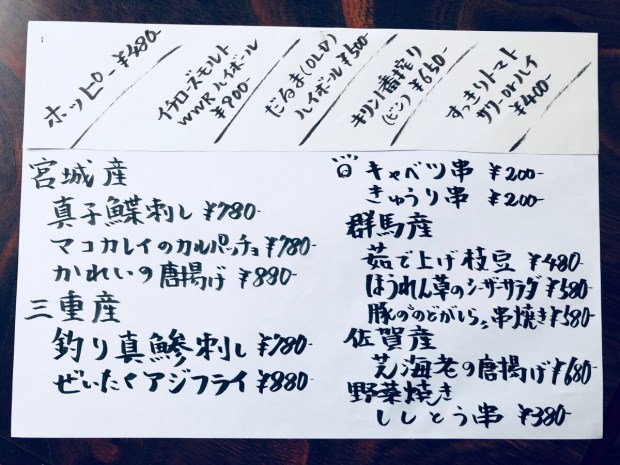 ホッピー ¥480-
イチローズ・モルト
WWR ハイボール
¥900-
だるま(OLD)
ハイボール ¥500-
キリン一番搾り
(ビン) ¥650-
すっきりトマト
サワー or ハイ
¥400-
宮城産
真子鰈刺し ¥780-
マコカレイのカルパッチョ ¥780-
かれいの唐揚げ ¥880-
三重産
釣り真鯵刺し ¥780-
ぜいたくアジフライ ¥880-
キャベツ串 ¥200-
きゅうり串 ¥200-
群馬産
茹で上げ枝豆 ¥480-
ほうれん草のシーザーサラダ ¥580-
豚の"のどがしら"串焼き ¥580-
佐賀産
芝海老の唐揚げ ¥680-
野菜焼き
ししとう串 ¥380-